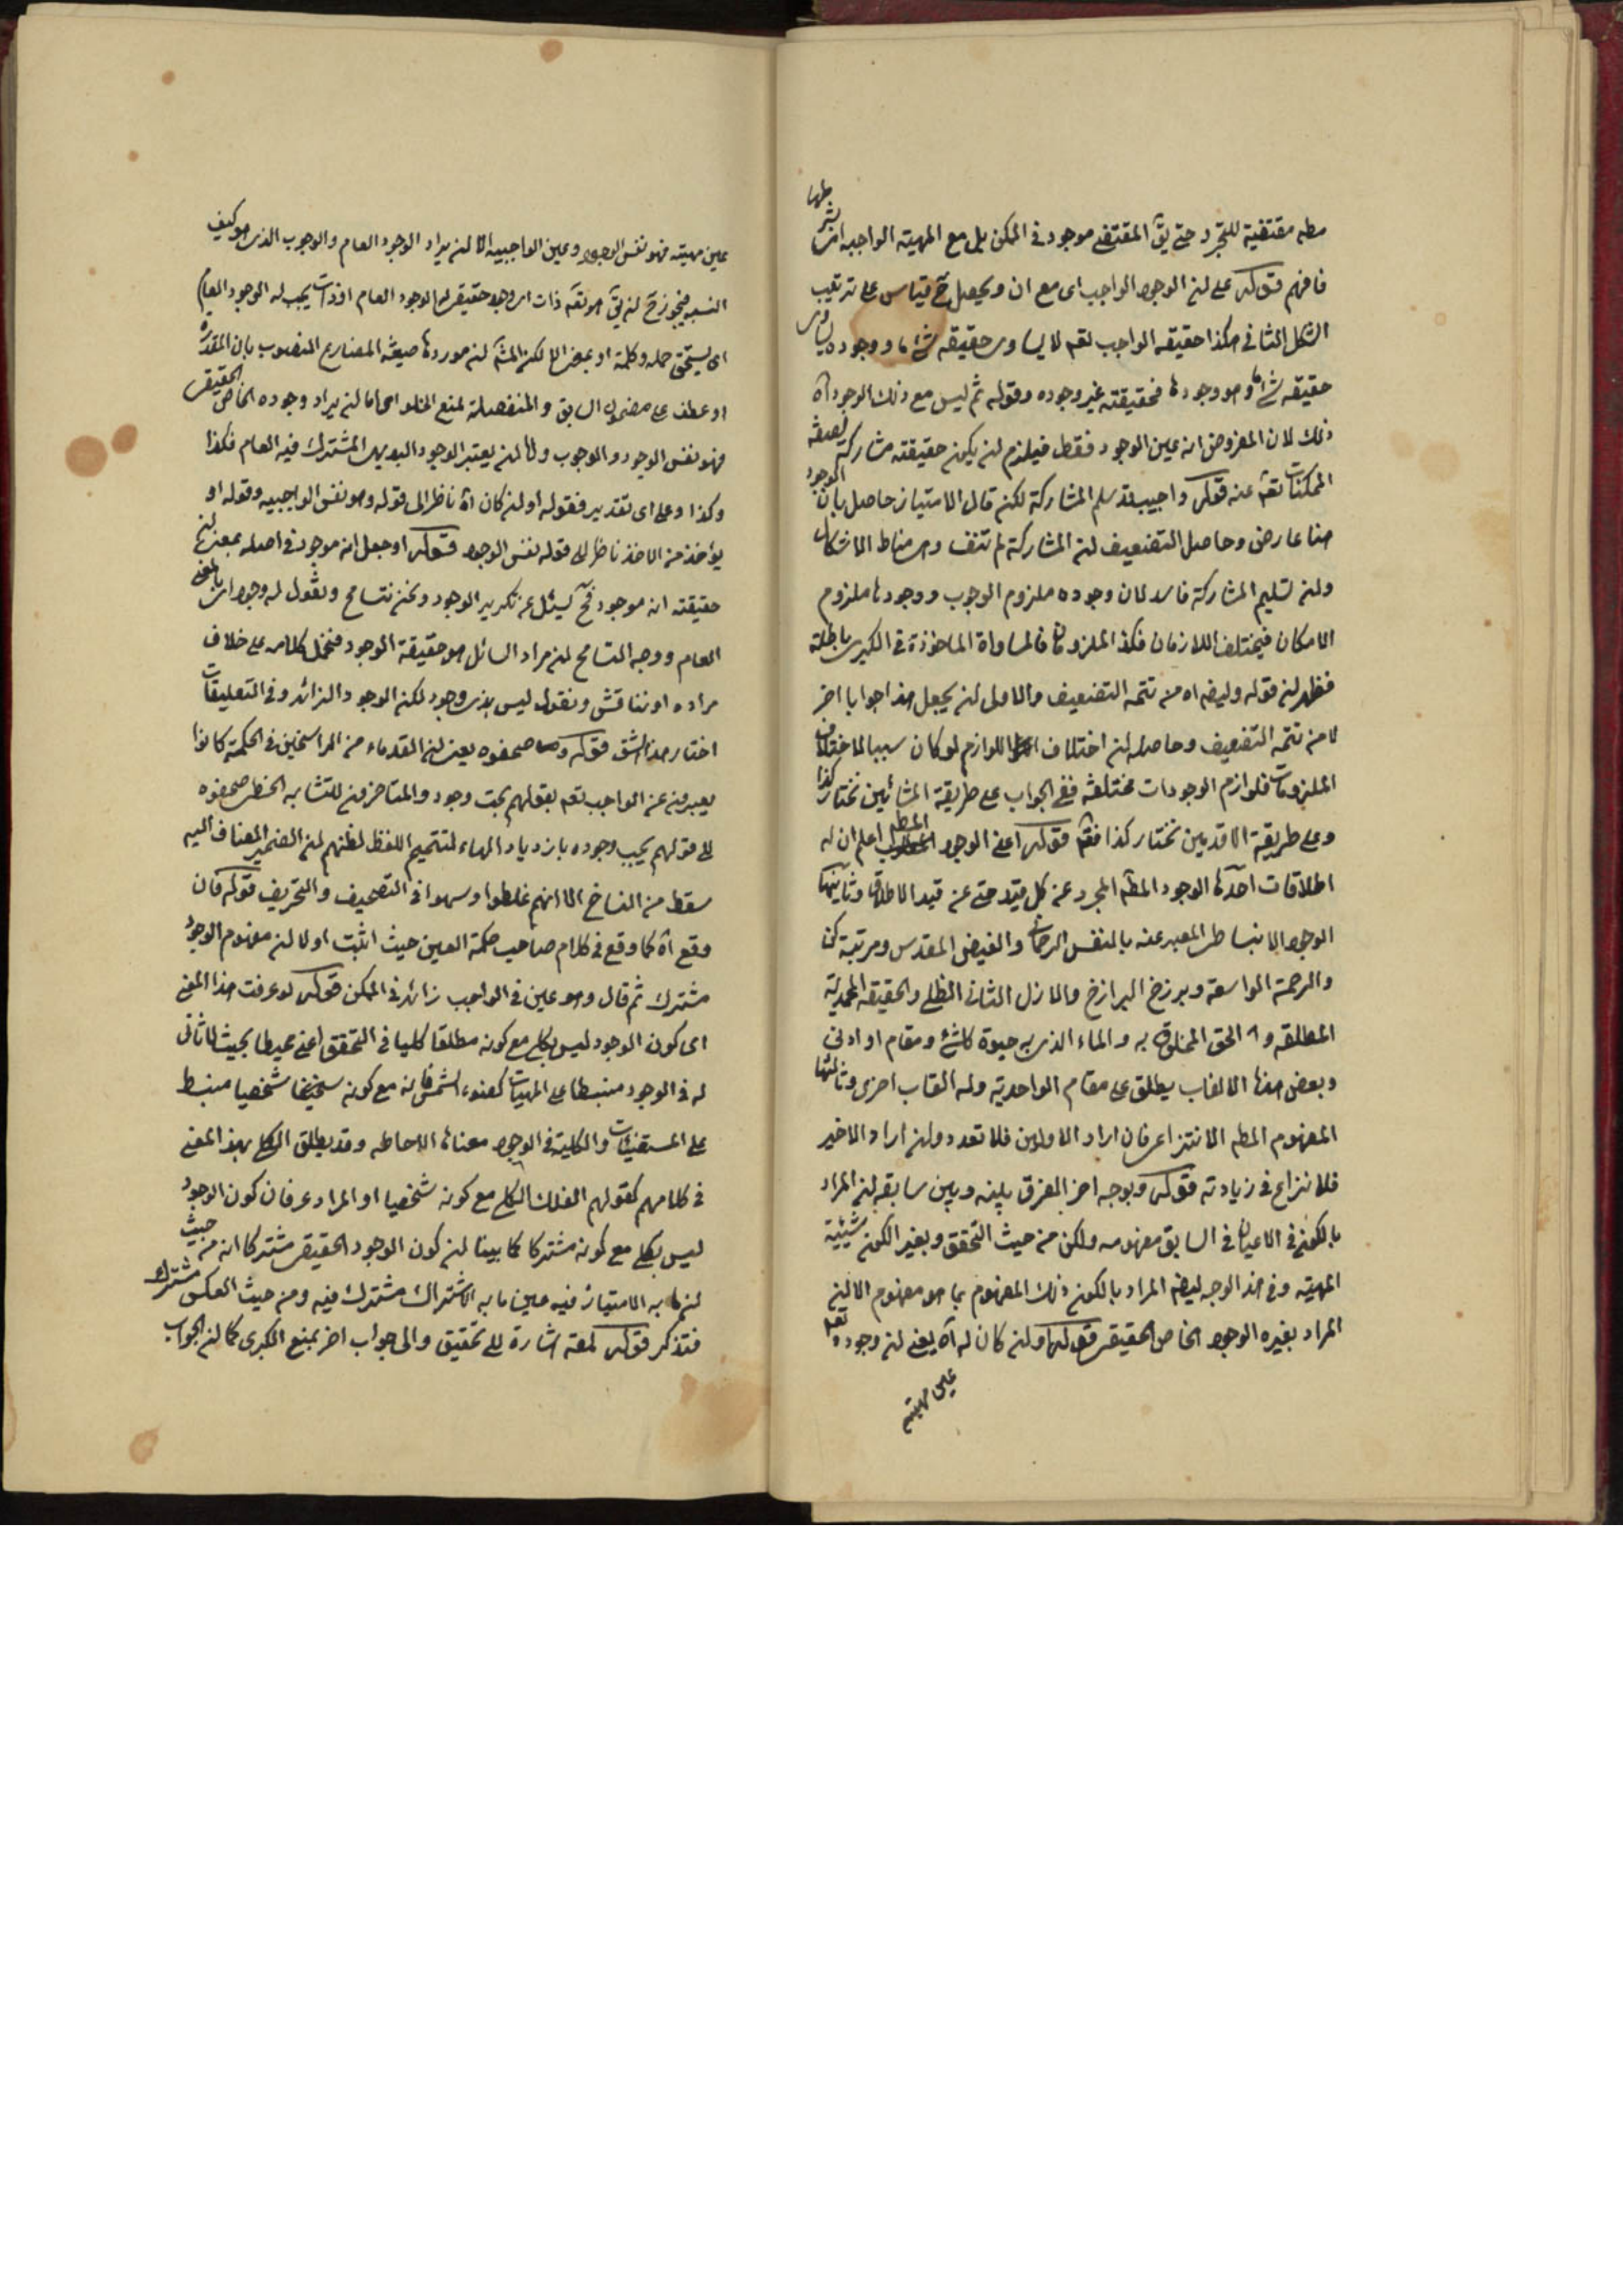 مطه مقتضية للتجرد حتى يق المقتضى موجود فى الممكن بل مع المهية الواجبة اى بشرطها
فافهم قوله على ان الوجود الواجب اى مع ان ويحصل ح قياس على ترتيب
الشكل الثانى هكذا حقيقة الواجب تعم لا يساوى حقيقة شئ ما ووجوده يساوى
حقيقة شئ ما وهو وجودها فحقيقته غير وجوده وقوله ثم ليس مع ذلك الوجود آه
ذلك لان المفروض انه عين الوجود فقط فيلزم ان يكون حقيقته مشاركة
الممكنات تعم عنه قوله واجيب قد سلم المشاركة لكن قال الامتياز حاصل بان الوجود
هنا عارض وحاصل التضعيف ان المشاركة لم تنف وهى مناط الاشكال
وان تسليم المشاركة فاسد لان وجوده ملزوم الوجوب ووجودنا ملزوم
الامكان فيختلف اللازمان فكذا الملزومان فالمساواة الماخوذة فى الكبرى باطلة
فظهر ان قوله وايضا آه من تتمة التضعيف والاولى ان يجعل هذا جوابا اخر
لا من تتمة التضعيف وحاصله ان اختلاف اللوازم لو كان سببا لاختلاف
الملزومات فلوازم الوجودات مختلفة ففى الجواب على طريقة المشائين نختار كذا
وعلى طريقة الاقدمين نختار كذا فقم قوله اعنى الوجود المطلق اعلم ان له
اطلاقات احدها الوجود المطلق المجرد عن كل قيد حتى عن قيد الاطلاق وثانيها
الوجود الانبساطى المعبر عنه بالنفس الرحمانى والفيض المقدس ومرتبة كن
والرحمة الواسعة وبرزخ البرازخ والازل الثانى الظلى والحقيقة المحمدية
المطلقة والحق المخلوق به والماء الذى به حيوة كل شئ ومقام او ادنى
وبعض هذه الالقاب يطلق على مقام الواحدية وله القاب اخرى وثالثها
المفهوم المطلق الانتزاعى فان اراد الاولين فلا تعدد وان اراد الاخير
فلا نزاع فى زيادته قوله وبوجه اخر الفرق بينه وبين سابقه ان المراد
بالكون فى الاعيان فى السابق مفهومه ولكن من حيث التحقق وبغير الكون شيئية
المهية وفى هذا الوجه ايضا المراد بالكون ذلك المفهوم بما هو مفهوم الا ان
المراد بغيره الوجود الخاص الحقيقى قوله وان كان له آه يعنى ان وجوده تعم
عين مهيته
عين مهيته فهو نفس الوجود وعين الواجبية الا ان يراد الوجود العام والوجوب الذى هو كيف
النسبة فيجوز ح ان يق هو تعم ذات اى وجود حقيقى له الوجود العام او ذات يجب له الوجود العام
اى يستحق حمله وكلمة او بمعنى الا لكن المشه ان موردها صيغة المضارع المنصوب بان المقدرة
او عطف على مضمون السابق والمنفصلة لمنع الخلو اى اما ان يراد وجوده الخاص الحقيقى
فهو نفس الوجود والوجوب واما ان يعتبر الوجود البديهى المشترك فيه العام فكذا
وكذا وعلى اى تقدير فقوله او ان كان آه ناظر الى قوله وهو نفس الواجبية وقوله او
يؤخذ من الاخذ ناظر الى قوله نفس الوجود قوله او جعل انه موجود فى اصله بمعنى ان
حقيقته انه موجود فح يسئل عن تكرير الوجود ونحن نتسامح ونقول له وجود اى بالمعنى
العام ووجه التسامح ان مراد السائل هو حقيقة الوجود فنحمل كلامه على خلاف
مراده او نناقش ونقول ليس بذى وجود لكن الوجود الزائد وفى التعليقات
اختار هذا الشق قوله وصحفوه يعنى ان القدماء من الراسخين فى الحكمة كانوا
يعبرون عن الواجب تعم بقولهم يجب وجود والمتاخرون للتشابه الخطى صحفوه
الى قولهم يجب وجوده بازدياد الهاء لتتميم اللفظ لظنهم ان الضمير المضاف اليه
سقط من النساخ الا انهم غلطوا وسهوا فى التصحيف والتحريف قوله فان
وقع آه كما وقع فى كلام صاحب حكمة العين حيث اثبت اولا ان مفهوم الوجود
مشترك ثم قال وهو عين فى الواجب زائد فى الممكن قوله لو عرفت هذا المعنى
اى كون الوجود ليس بكلى مع كونه مطلقا كليا فى التحقق اعنى محيطا بحيث لا ثانى
له فى الوجود منبسطا على المهيات كضوء الشمس فانه مع كونه شخصيا منبسط
على المستضيئات والكلية فى الوجود معناها الاحاطة وقد يطلق الكلى بهذا المعنى
فى كلامهم كقولهم الفلك الكلى مع كونه شخصيا او المراد عرفان كون الوجود
ليس بكلى مع كونه مشتركا كما بينا ان كون الوجود الحقيقى مشتركا انه من حيث
ان ما به الامتياز فيه عين ما به الاشتراك مشترك فيه ومن حيث العكس مشترك
فتذكر قوله لمعة اشارة الى تحقيق والى جواب اخر بمنع الكبرى كما ان الجواب